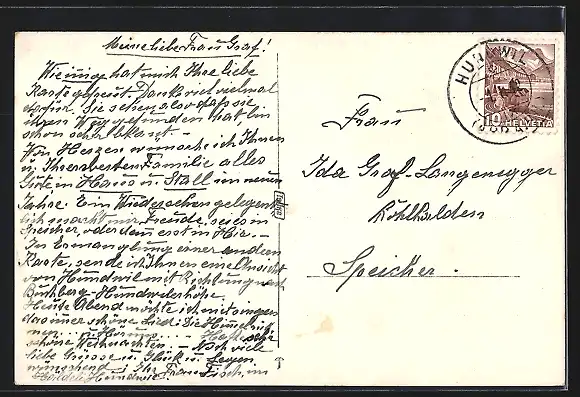 Meine liebe Frau Graf!
Wie innig hat mich Ihre liebe
Karte gefreut. Dank viel vielmal
dafür. Sie sehen also dass sie
ihren Weg gefunden hat bin
schon
Von Herzen wünsche ich Ihnen
u. Ihrer werten Familie alles
Gute in Haus u. Stall im neuen
Jahre. Ein Wiedersehen gelegent-
lich macht mir Freude, sei es in
Speicher, oder dann erst in Hie.-
In Ermanglung einer andern
Karte, sende ich Ihnen eine Ansicht
von Hundwil mit Richtung
Buchberg-Hundwilerhöhe.
Heute Abend möchte ich mitsingen
das immer schöne Lied: Die Himmel
schöne Weihnachten. - Noch viele
liebe Grüsse u. Glück u. Segen
wünschend Ihr Frau Fisch, im
Hundwil!
HUNDWIL
10 HELVETIA
Frau
Ida Graf-Langenegger
Speicher.